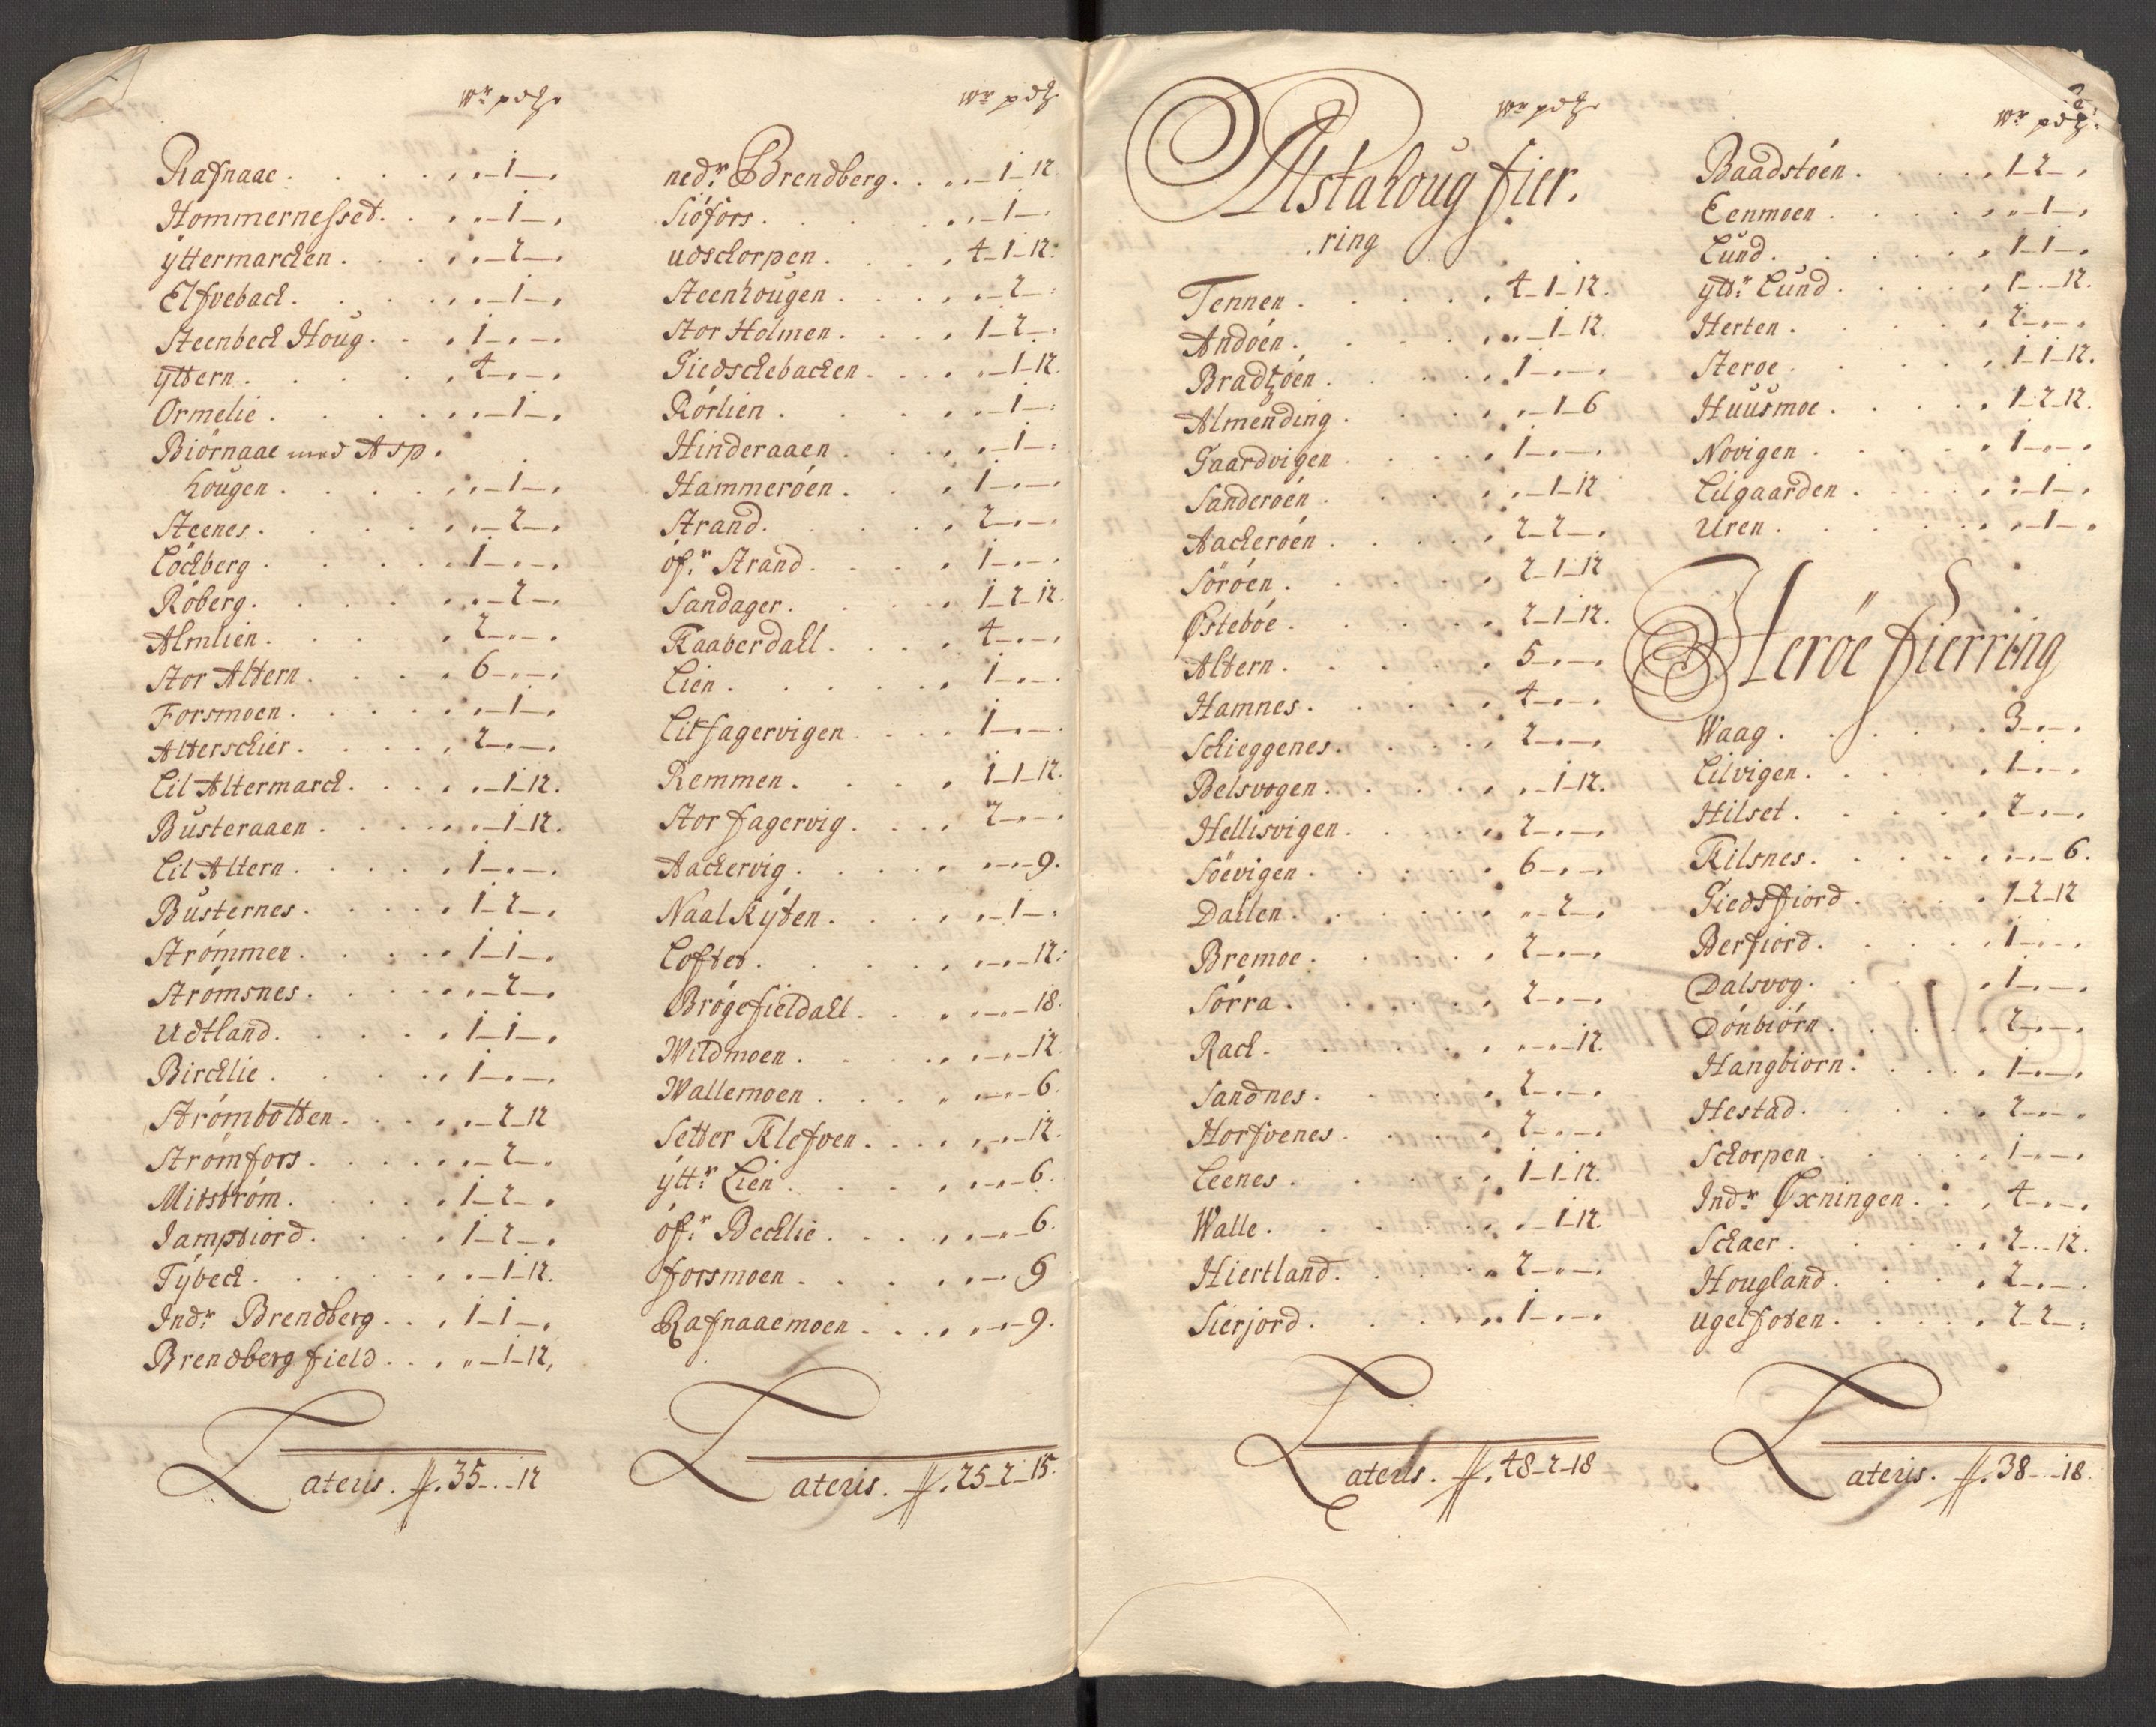 Wr pd ℔
Rafnaae . . . . „ „–1–„
Hommernesset . . „ „–1–„
ÿttermarcken . . . „ „–2–„
Elfveback . . . . „ „–1–„
Steenbeck Houg . . „ 1–„–„
ÿttern . . . . „ 4–„–„
Ormelie . . . . „ „–1–„
Biörnaae med Asp.
hougen . . . . „ „–1–„
Steenes . . . . „ „–2–„
Löckberg . . . . „ 1–„–„
Röberg . . . . „ „–2–„
Almlien . . . . „ 2–„–„
Stor Altern . . . „ 6–„–„
Forsmoen . . . . „ „–1–„
Alterschier . . . „ 2–„–„
Lil Altermarck . . „ „–1–12.
Busteraaen . . . „ „–1–12.
Lil Altern . . . . „ 1–„–„
Busternes . . . . „ 1–2–„
Strömmen . . . . „ 1–1–„
Strömsnes . . . . „ „–2–„
Udtland . . . . „ 1–1–„
Bircklie . . . . „ 1–„–„
Strömbotten . . . „ „–2–12
Strömfors . . . . „ „–2–„
Midström . . . . „ 1–2–„
Jamptiord . . . . „ 1–2–„
Tÿbeck . . . . „ „–1–12.
Indr Brendberg . . „ 1–1–„
Brendberg field . . „ „–1–12,
Lateris. ∬. 35–„–12
Wr pd ℔
nedr Brendberg . . „ „–1–12
Siöfors . . . . „ „–1–„
udschorpen . . . „ 4–1–12.
Steenhougen . . . „ „–2–„
Stor Holmen . . . „ 1–2–„
Giedschebacken . . „ „–1–12.
Rörlien . . . . „ „–1–„
Hinderaaen . . . „ „–1–„
Hammeröen . . . „ 1–„–„
Strand . . . . „ 2–„–„
öfr Strand . . . „ 1–„–„
Sandager . . . . „ 1–2–12.
Kaaberdall . . . „ 4–„–„
Lien . . . . „ 1–„–„
Lilfagervigen . . . „ 1–„–„
Remmen . . . . „ 1–1–12.
Stor fagervig . . . „ 2–„–„
Aackervig . . . . „ „–„–9.
Naal Kÿten . . . „ „–1–„
Loftet . . . . „ „–„–12.
Brögefieldall . . . „ „–„–18.
Wildmoen . . . . „ „–„–12.
Wallemoen . . . „ „–„–6.
Setter Klefven . . „ „–„–12.
ÿttr Lien . . . . „ „–„–6.
öfr Becklie . . . „ „–„–6.
forsmoen . . . . „ „–„–9
Rafnaaemoen . . . „ „–„–9.
Lateris. ∬. 25–2–15.
Wr pd ℔
Alstahoug fier.
ring
Tennen . . . . „ 4–1–12.
Andöen . . . . „ „–1–12.
Bradtzöen . . . . „ 1–„–„
Almending . . . „ „–1–6
Gaardvigen . . . „ 1–„–„
Sanderöen . . . . „ „–1–12
Aackeröen . . . . „ 2–2–„
Söröen . . . . „ 2–1–12
Østeböe . . . . „ 2–1–12.
Altern . . . . „ 5–„–„
Hamnes . . . . „ 4–„–„
Schieggenes . . . „ 2–„–„
Belsvogen . . . . „ „–1–12.
Hellisvigen . . . „ 2–„–„
Söevigen . . . . „ 6–„–„
Dallen . . . . „ „–2–„
Bremoe . . . . „ 2–„–„
Sörra . . . . „ 2–„–„
Rack . . . . „ „–„–12.
Sandnes . . . . „ 2–„–„
Horfvenes . . . . „ 2–„–„
Leenes . . . . „ 1–1–12.
Walle . . . . „ „–1–12.
Hiertland . . . . „ 2–„–„
Sierjord . . . . „ 1–„–„
Lateris. ∬. 48–2–18
Wr pd ℔
Baadstöen . . . . „ 1–2–„
Eenmoen . . . . „ „–1–„
Lund . . . . „ 1–1–„
ÿttr Lund . . . . „ 1–„–12.
Herten . . . . „ 2–„–„
Steroe . . . . „ 1–1–12.
Huusmoe . . . . „ 1–2–12.
Novigen . . . . „ 1–„–„
Lilgaarden . . . „ „–1–„
Uren . . . . „ „–1–„
Heröe fierring
Waag . . . . „ 3–„–„
Lilvigen . . . . „ 1–„–„
Hilset . . . . „ 2–„–„
Kilsnes . . . . „ „–„–6.
Giedsfiord . . . . „ 1–2–12
Berfiord . . . . „ 1–„–„
Dalsvog . . . . „ 1–„–„
Dönbiörn . . . . „ 2–„–„
Hangbiorn . . . . „ 1–„–„
Hestad . . . . „ 2–„–„
Schorpen . . . . „ 1–„–„
Indr Øxningen . . „ 4–„–„
Schaer . . . . „ 2–„–12.
Hougland . . . . „ 2–„–„
ugelfoten . . . . „ 2–2–„
Lateris. ∬. 38–„–18.